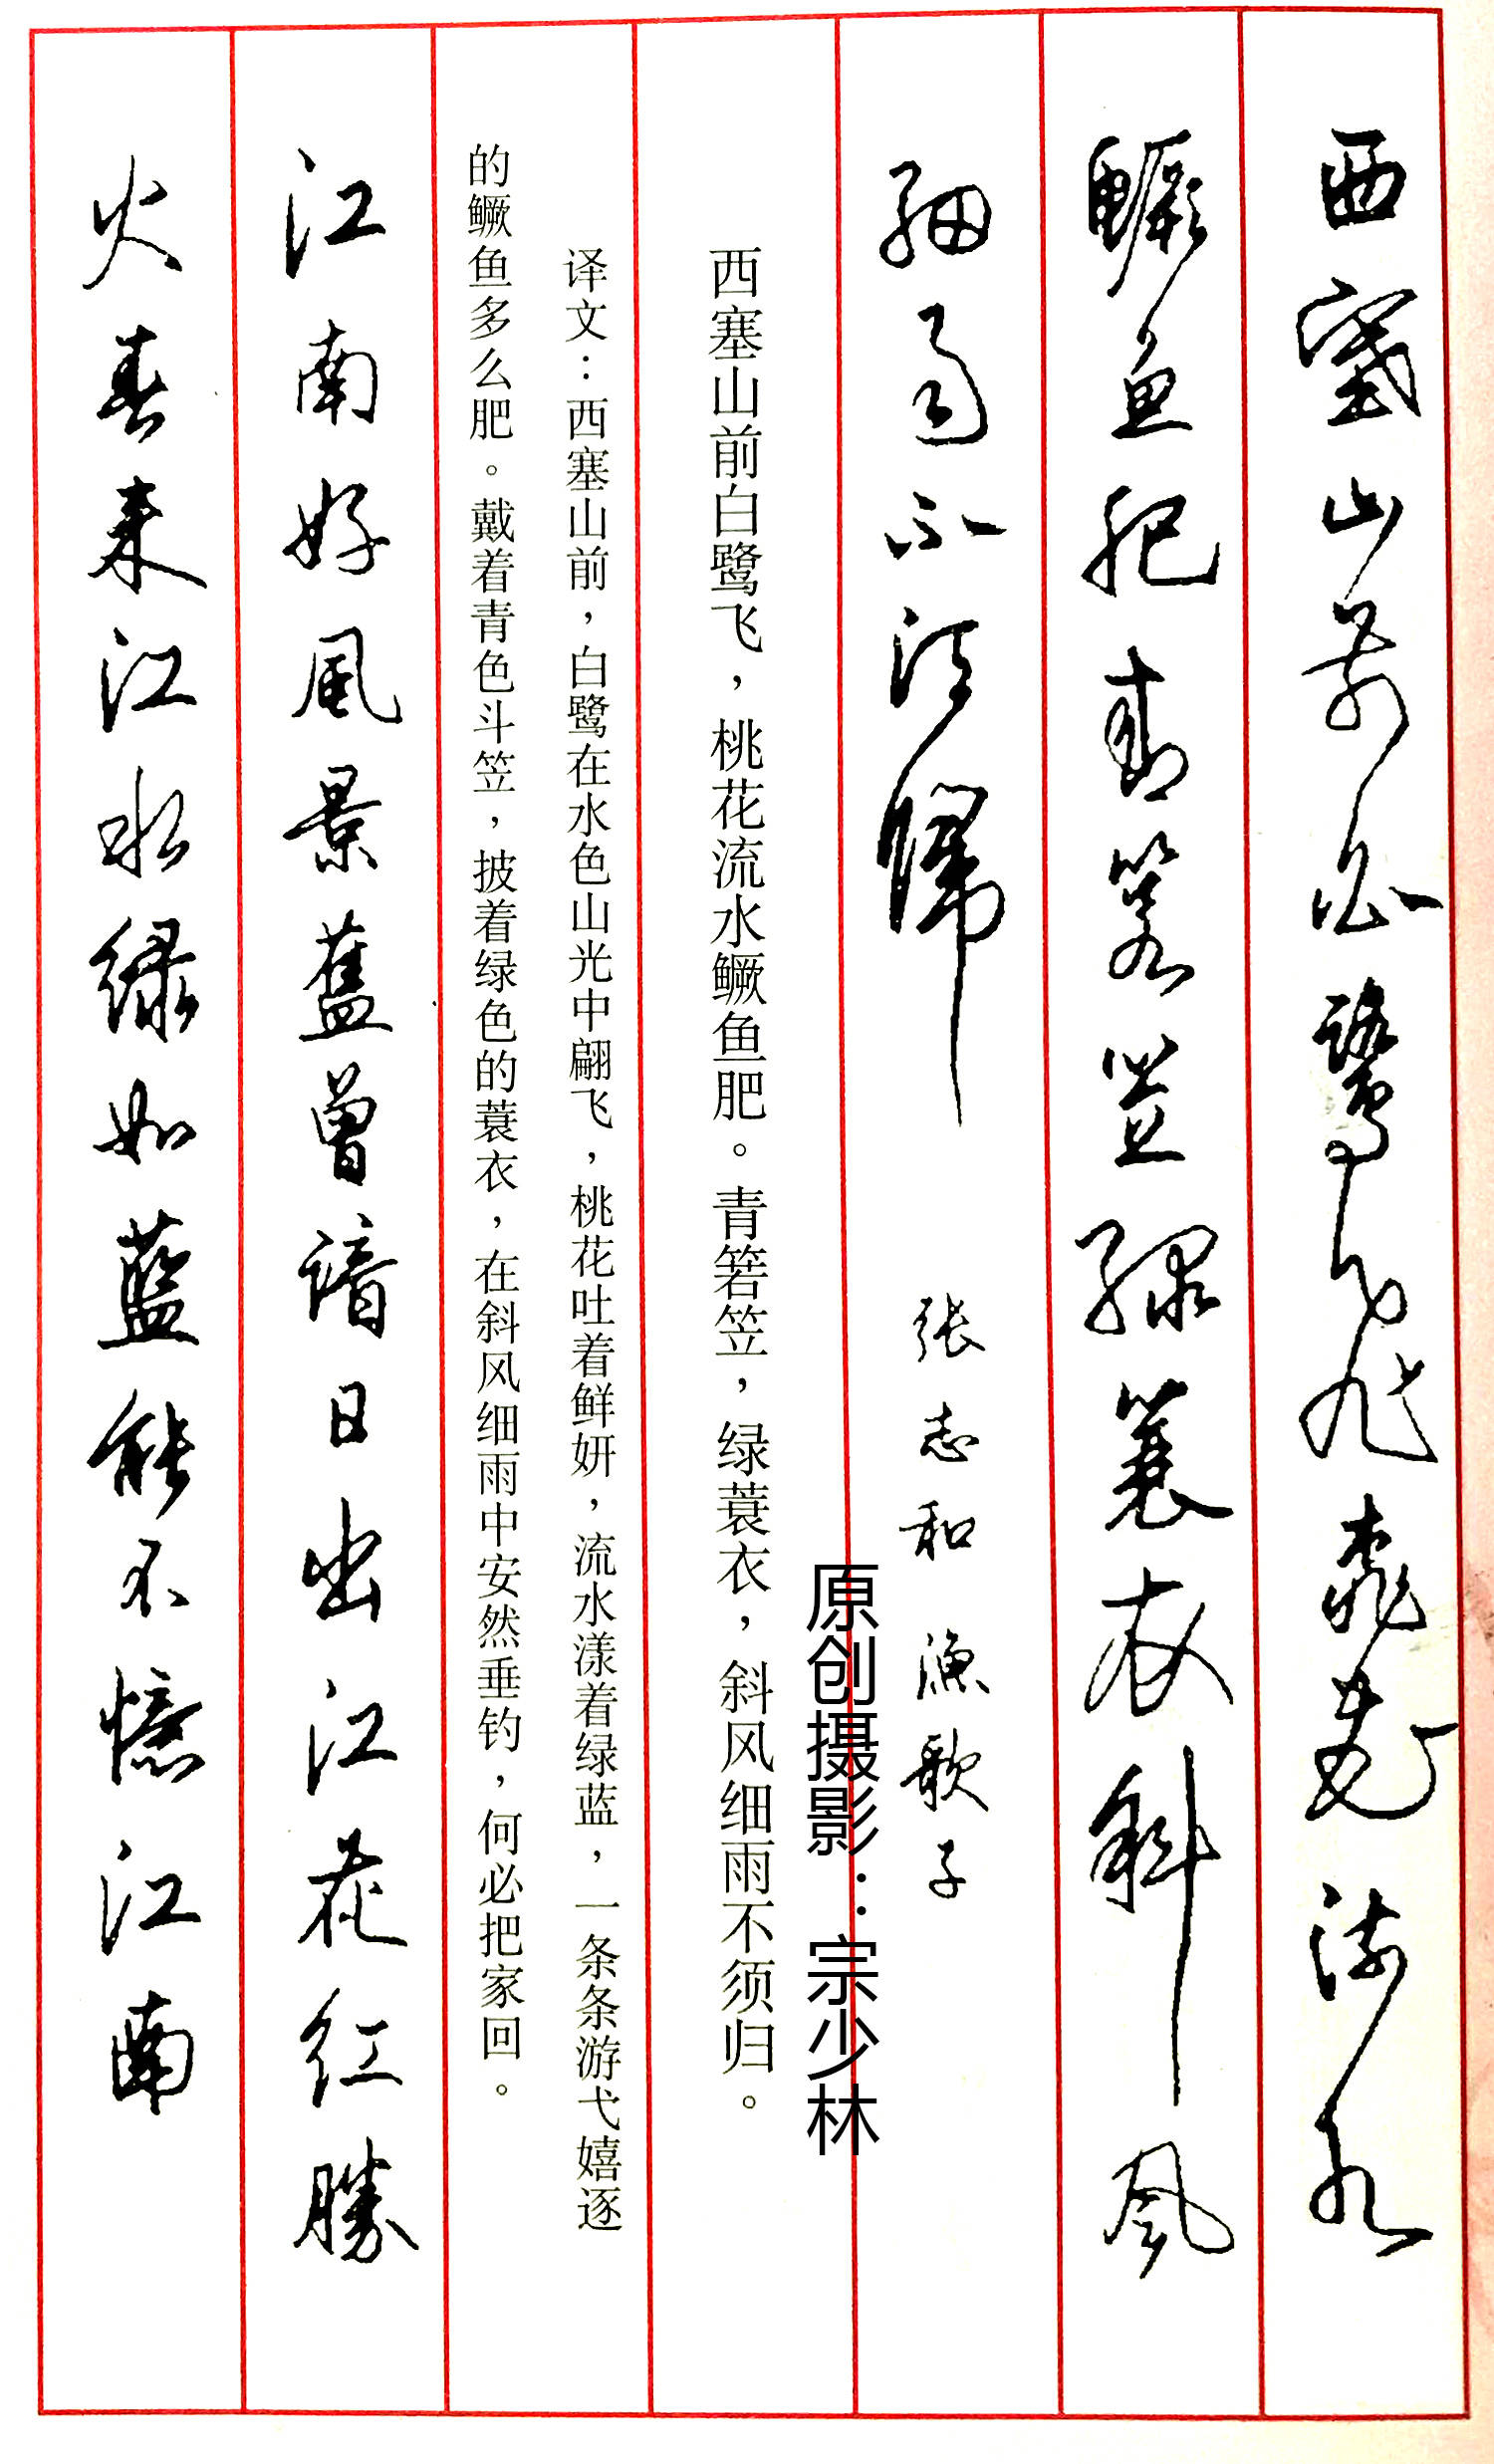 西塞山前白鹭飞桃花流水
鳜鱼肥青箬笠绿蓑衣斜风
细雨不须歸
张志和 渔歌子
原创摄影：宗少林
西塞山前白鹭飞，桃花流水鳜鱼肥。青箬笠，绿蓑衣，斜风细雨不须归。
译文：西塞山前，白鹭在水色山光中翩飞，桃花吐着鲜妍，流水漾着绿蓝，一条条游弋嬉逐
的鳜鱼多么肥。戴着青色斗笠，披着绿色的蓑衣，在斜风细雨中安然垂钓，何必把家回。
江南好風景舊曾諳日出江花红勝
火春来江水绿如藍能不憶江南